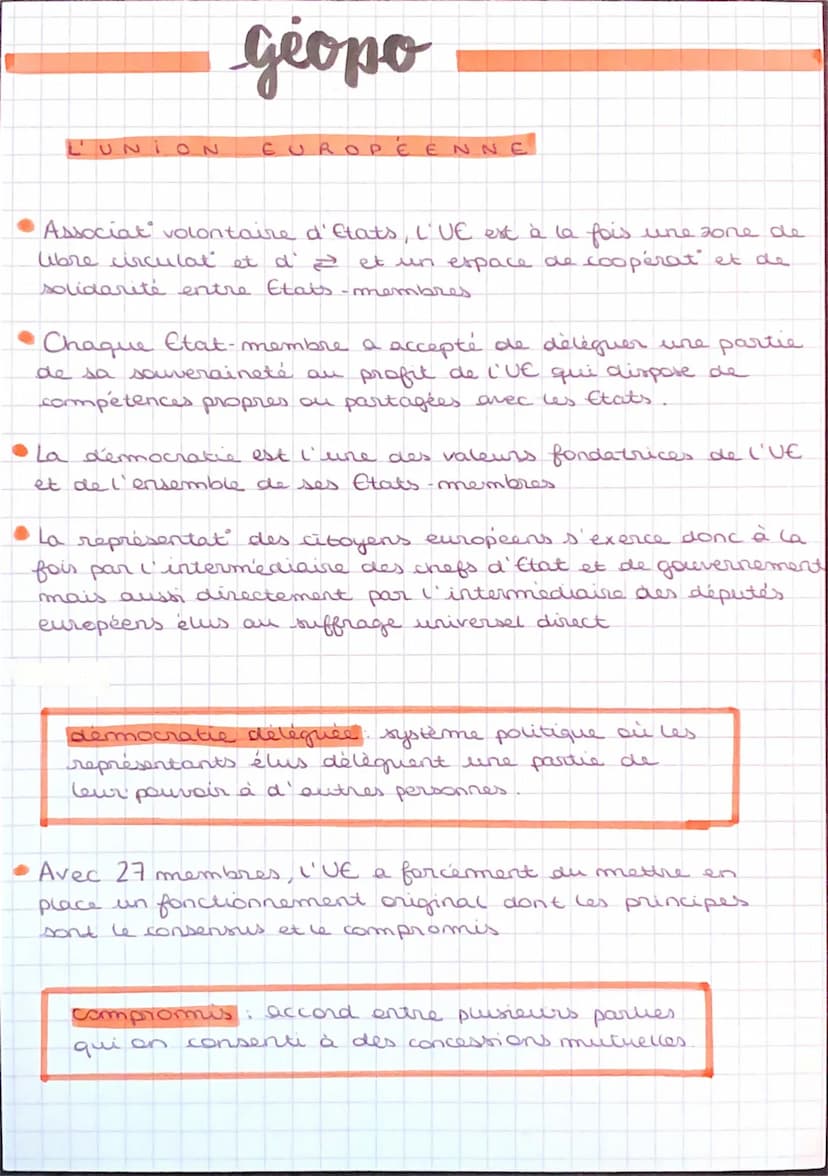 Géopo
L'UNION EUROPÉENNE
• Associat° volontaire d'Etats, l'UE est à la fois une zone de
libre circulat° et d' ⇄ et un espace de coopérat° et de
solidarité entre Etats-membres
• Chaque Etat-membre a accepté de déléguer une partie
de sa souveraineté au profit de l'UE qui dispose de
compétences propres ou partagées avec les Etats.
• La démocratie est l'une des valeurs fondatrices de l'UE
et de l'ensemble de ses Etats-membres
• La représentat° des citoyens européens s'exerce donc à la
fois par l'intermédiaire des chefs d'Etat et de gouvernement
mais aussi directement par l'intermédiaire des députés
européens élus au suffrage universel direct
démocratie déléguée : système politique où les
représentants élus délèguent une partie de
leur pouvoir à d'autres personnes.
• Avec 27 membres, l'UE a forcément du mettre en
place un fonctionnement original dont les principes
sont le consensus et le compromis
compromis : accord entre plusieurs parties
qui on consenti à des concessions mutuelles.